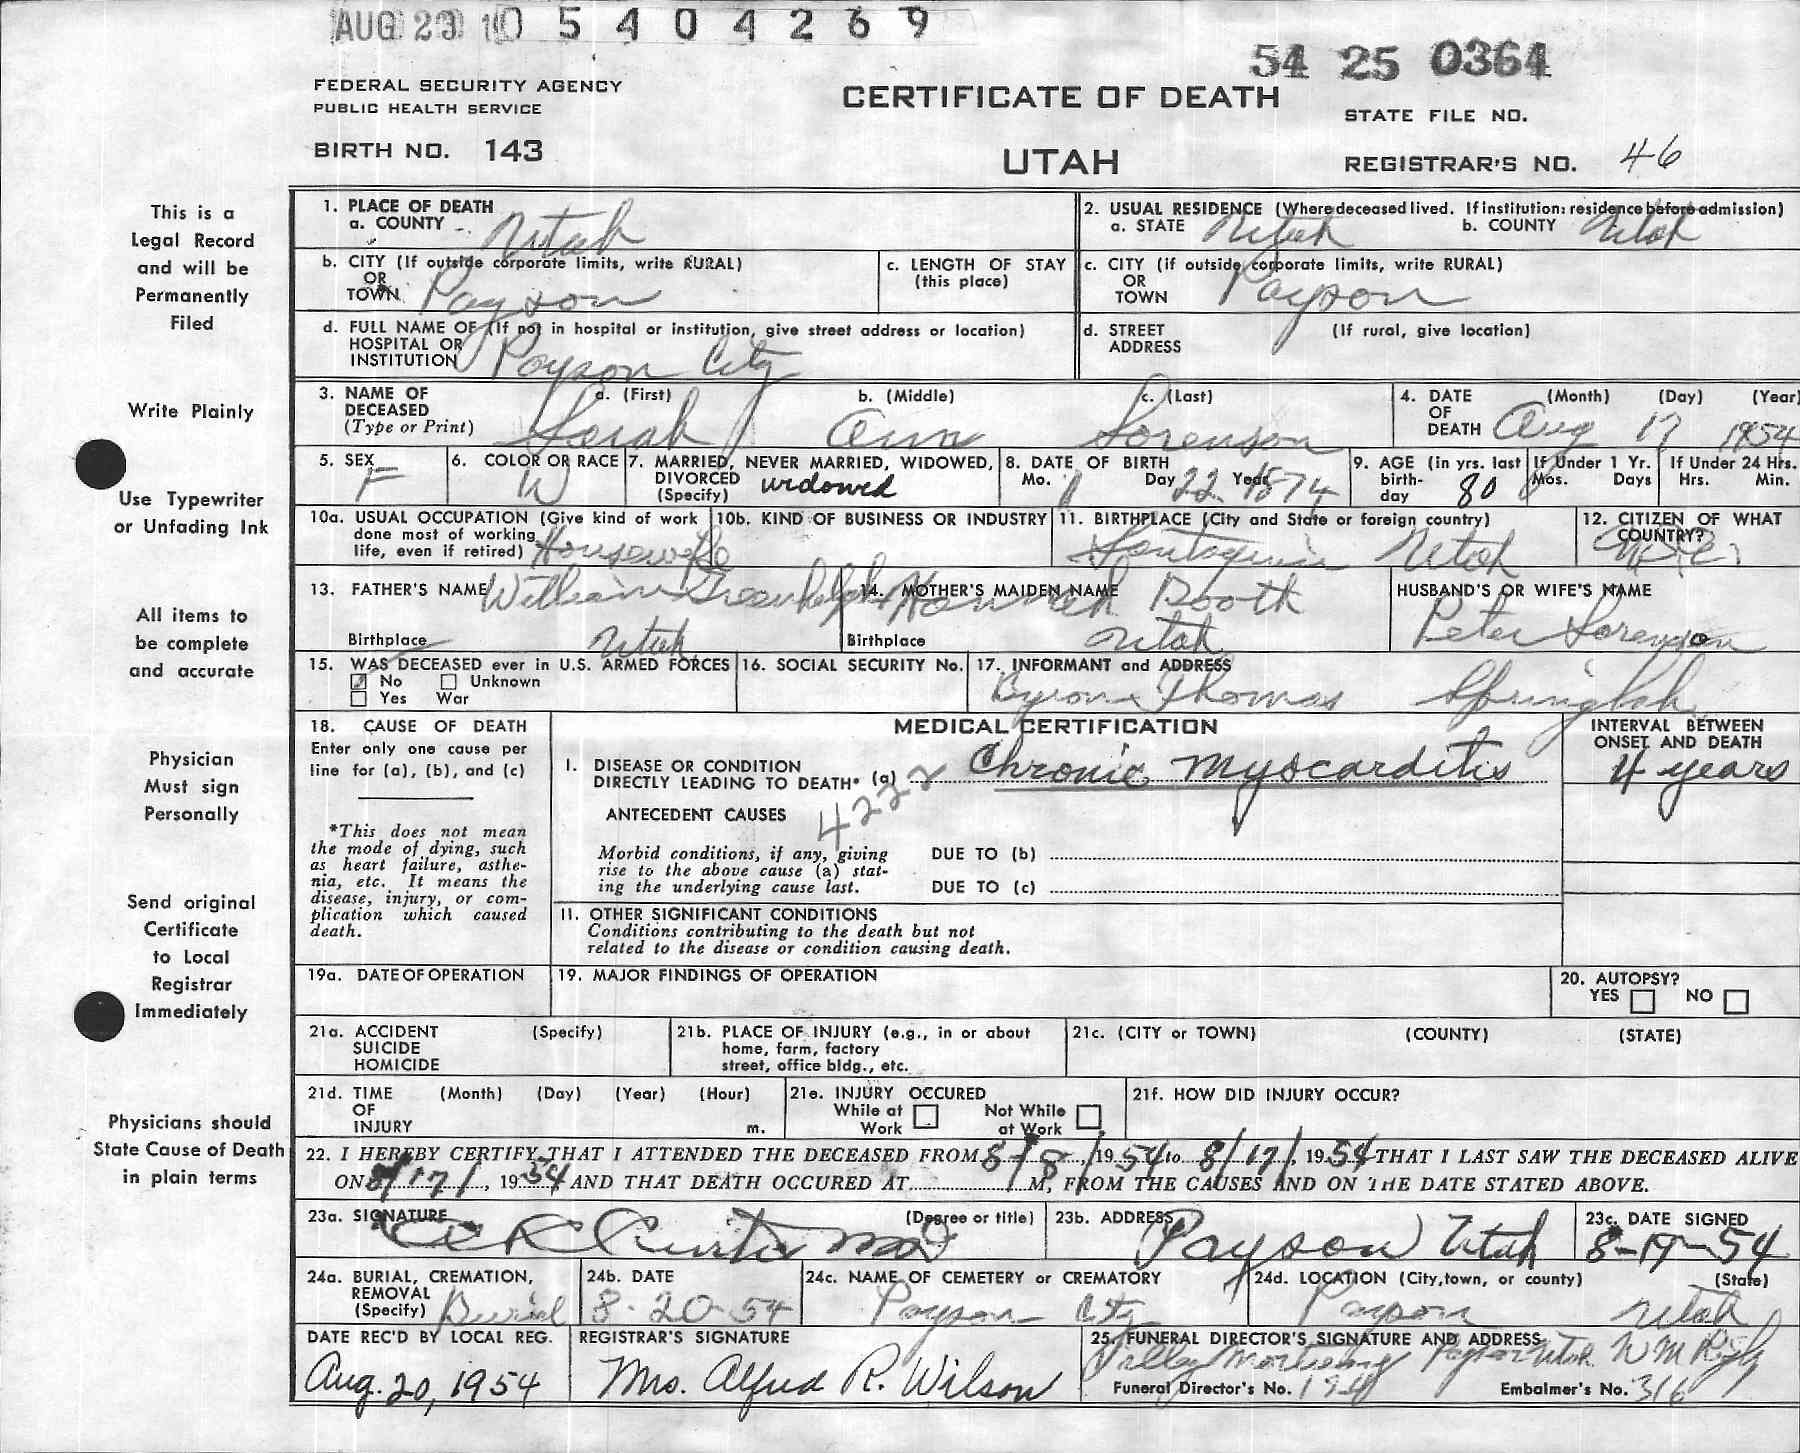 AUG 23 10 5 4 0 4 2 6 9
54 25 0364
FEDERAL SECURITY AGENCY
PUBLIC HEALTH SERVICE
CERTIFICATE OF DEATH
STATE FILE NO.
BIRTH NO. 143
UTAH
REGISTRAR'S NO. 46
This is a
Legal Record
and will be
Permanently
Filed
Write Plainly
Use Typewriter
or Unfading Ink
All items to
be complete
and accurate
Physician
Must sign
Personally
Send original
Certificate
to Local
Registrar
Immediately
Physicians should
State Cause of Death
in plain terms
1. PLACE OF DEATH
a. COUNTY Utah
2. USUAL RESIDENCE (Where deceased lived. If institution: residence before admission)
a. STATE Utah b. COUNTY Utah
b. CITY (If outside corporate limits, write RURAL)
OR
TOWN Payson
c. LENGTH OF STAY
(this place)
c. CITY (if outside corporate limits, write RURAL)
OR
TOWN Payson
d. FULL NAME OF (If not in hospital or institution, give street address or location)
HOSPITAL OR
INSTITUTION Payson City
d. STREET (If rural, give location)
ADDRESS
3. NAME OF a. (First) b. (Middle) c. (Last)
DECEASED
(Type or Print) Sarah Ann Sorenson
4. DATE (Month) (Day) (Year)
OF
DEATH Aug 17 1954
5. SEX
F
6. COLOR OR RACE
W
7. MARRIED, NEVER MARRIED, WIDOWED,
DIVORCED
(Specify) widowed
8. DATE OF BIRTH
Mo. Day 22 Year 1874
9. AGE (in yrs. last
birth-
day 80
If Under 1 Yr.
Mos. Days
If Under 24 Hrs.
Hrs. Min.
10a. USUAL OCCUPATION (Give kind of work
done most of working
life, even if retired) Housewife
10b. KIND OF BUSINESS OR INDUSTRY
11. BIRTHPLACE (City and State or foreign country)
Santaquin Utah
12. CITIZEN OF WHAT
COUNTRY?
13. FATHER'S NAME William Greenhalgh
Birthplace Utah
14. MOTHER'S MAIDEN NAME Hannah Booth
Birthplace Utah
HUSBAND'S OR WIFE'S NAME
Peter Sorenson
15. WAS DECEASED ever in U.S. ARMED FORCES
No Unknown
Yes War
16. SOCIAL SECURITY No.
17. INFORMANT and ADDRESS
Byron Thomas
18. CAUSE OF DEATH
Enter only one cause per
line for (a), (b), and (c)
*This does not mean
the mode of dying, such
as heart failure, asthe-
nia, etc. It means the
disease, injury, or com-
plication which caused
death.
MEDICAL CERTIFICATION
INTERVAL BETWEEN
ONSET AND DEATH
I. DISEASE OR CONDITION
DIRECTLY LEADING TO DEATH* (a) Chronic Myocarditis 4 years
4222
ANTECEDENT CAUSES
Morbid conditions, if any, giving
rise to the above cause (a) stat-
ing the underlying cause last.
DUE TO (b)
DUE TO (c)
II. OTHER SIGNIFICANT CONDITIONS
Conditions contributing to the death but not
related to the disease or condition causing death.
19a. DATE OF OPERATION
19. MAJOR FINDINGS OF OPERATION
20. AUTOPSY?
YES NO
21a. ACCIDENT (Specify)
SUICIDE
HOMICIDE
21b. PLACE OF INJURY (e.g., in or about
home, farm, factory
street, office bldg., etc.
21c. (CITY or TOWN) (COUNTY) (STATE)
21d. TIME (Month) (Day) (Year) (Hour)
OF
INJURY m.
21e. INJURY OCCURED
While at Work Not While at Work
21f. HOW DID INJURY OCCUR?
22. I HEREBY CERTIFY THAT I ATTENDED THE DECEASED FROM 8/8/, 1954 to 8/17/, 1954 THAT I LAST SAW THE DECEASED ALIVE
ON 8/17/, 1954 AND THAT DEATH OCCURED AT M, FROM THE CAUSES AND ON THE DATE STATED ABOVE.
23a. SIGNATURE (Degree or title)
Curtis MD
23b. ADDRESS
Payson Utah
23c. DATE SIGNED
8-19-54
24a. BURIAL, CREMATION,
REMOVAL
(Specify) Burial
24b. DATE
8-20-54
24c. NAME OF CEMETERY or CREMATORY
Payson City
24d. LOCATION (City, town, or county) (State)
Payson Utah
DATE REC'D BY LOCAL REG.
Aug. 20, 1954
REGISTRAR'S SIGNATURE
Mrs. Alfred R. Wilson
25. FUNERAL DIRECTOR'S SIGNATURE AND ADDRESS
Valley Mortuary Payson Utah
Funeral Director's No. Embalmer's No. 316